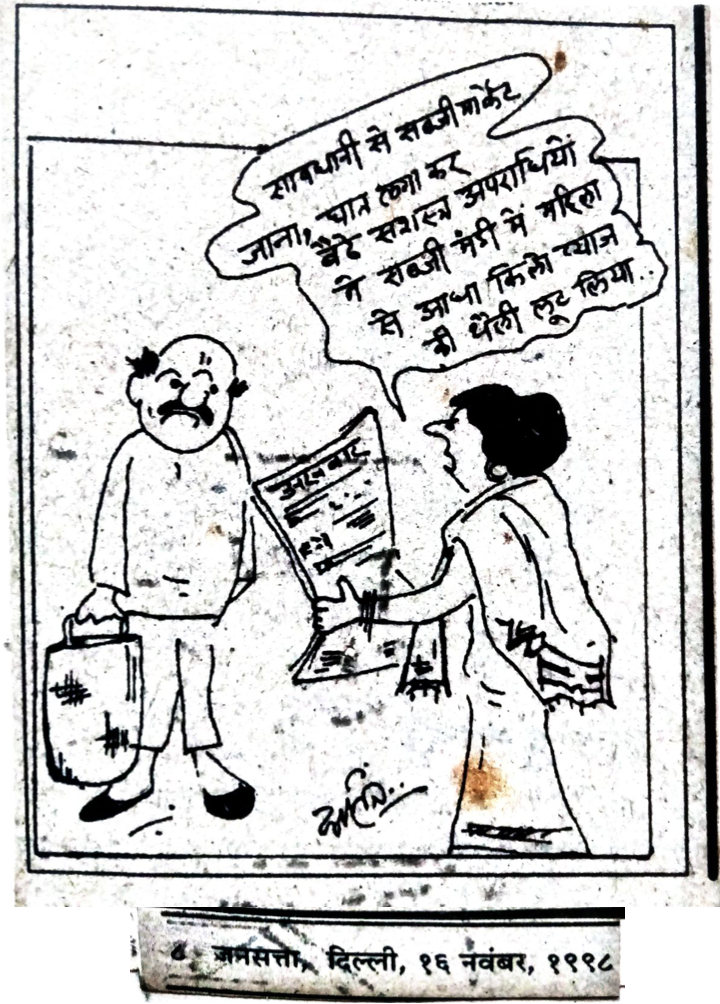 सावधानी से सब्जीमार्केट
जाना, घात लगा कर
बैठे सशस्त्र अपराधियों
ने सब्जी मंडी में महिला
से आधा किलो प्याज
की थैली लूट लिया..
अखबार
८ जनसत्ता, दिल्ली, १६ नवंबर, १९९८